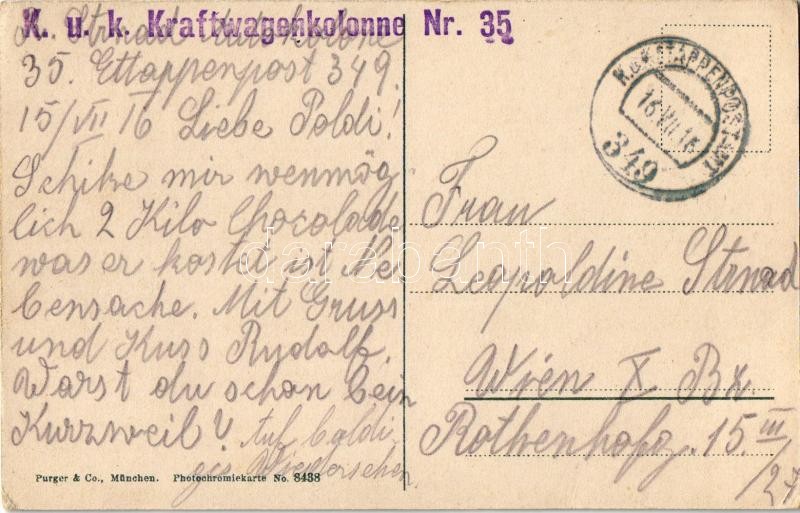 K. u. k. Kraftwagenkolonne Nr. 35
R. Strnad Autokolone
35. Ettappenpost 349.
15/VII 16 Liebe Poldi!
Schike mir wenmög
lich 2 Kilo Chocolade
was er kostet ist Ne
bensache. Mit Gruss
und Kuss Rudolf.
Warst du schon bein
Kurzweil? Auf baldi
ges Wiedersehen.
Purger & Co., München. Photochromiekarte No. 8438
K.u.K. ETAPPENPOSTAMT
16.VII.16
349
Frau
Leopoldine Strnad
Wien X Bz.
Rothenhofg. 15. III
/27
darabanth